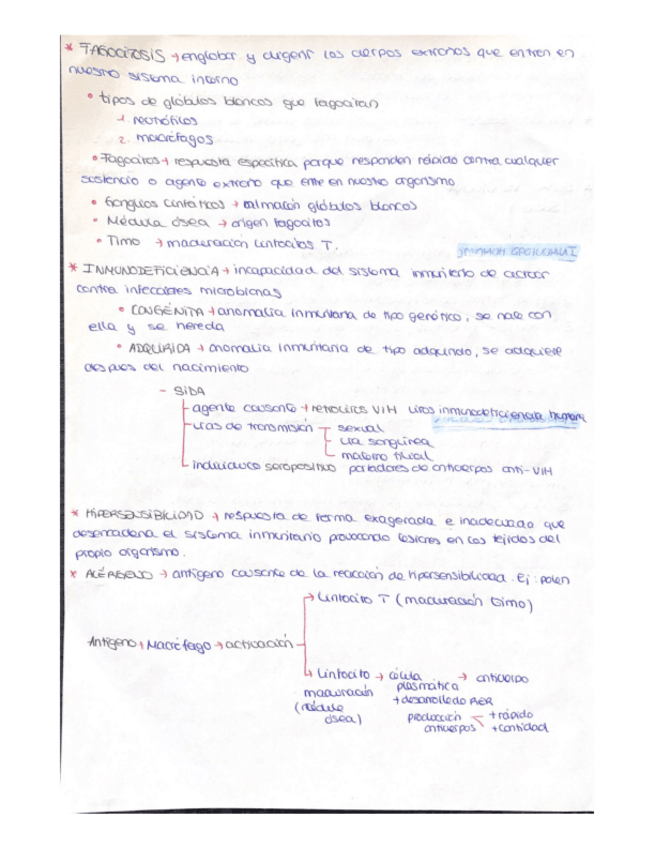 * FAGOCITOSIS → englobar y digerir los cuerpos extraños que entren en
nuestro sistema interno
• tipos de glóbulos blancos que fagocitan
1. neutrófilos
2. macrófagos
• Fagocitos → respuesta específica porque responden rápido contra cualquier
sustancia o agente extraño que entre en nuestro organismo
• Ganglios linfáticos → almacén glóbulos blancos
• Médula ósea → origen fagocitos
• Timo → maduración linfocitos T.
* INMUNODEFICIENCIA → incapacidad del sistema inmunitario de actuar
contra infecciones microbianas
• CONGÉNITA → anomalía inmunitaria de tipo genético, se nace con
ella y se hereda
• ADQUIRIDA → anomalía inmunitaria de tipo adquirido, se adquiere
después del nacimiento
- SIDA
agente causante → retrovirus VIH virus inmunodeficiencia humana
vías de transmisión sexual
vía sanguínea
materno filial
individuo seropositivo portadores de anticuerpos anti-VIH
* HIPERSENSIBILIDAD → respuesta de forma exagerada e inadecuada que
desencadena el sistema inmunitario provocando lesiones en los tejidos del
propio organismo.
* ALÉRGENO → antígeno causante de la reacción de hipersensibilidad. Ej: polen
→ Linfocito T (maduración timo)
Antígeno → Macrófago → activación
→ Linfocito → célula → anticuerpo
maduración plasmática
(médula + desarrollado RER
ósea) producción + rápido
anticuerpos + cantidad